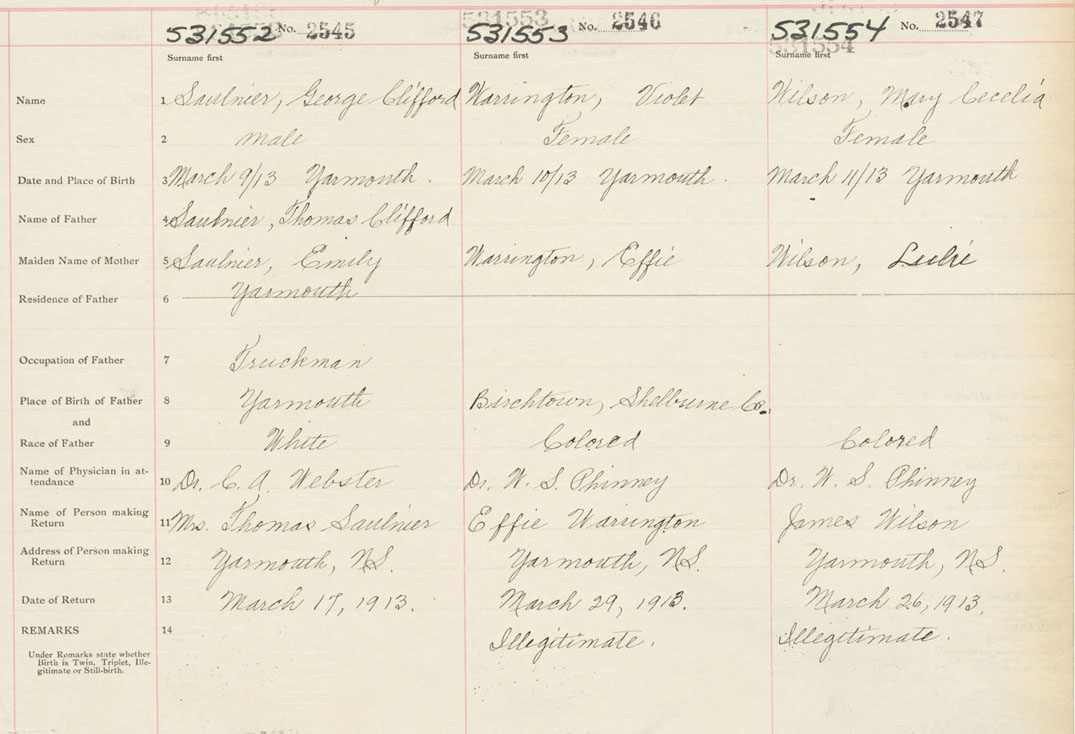 531552 No. 2545 531553 No. 2546 531554 No. 2547
531553 531554
Surname first Surname first Surname first
Name 1 Saulnier, George Clifford Warrington, Violet Wilson, Mary Cecelia
Sex 2 Male Female Female
Date and Place of Birth 3 March 9/13 Yarmouth. March 10/13 Yarmouth. March 11/13 Yarmouth
Name of Father 4 Saulnier, Thomas Clifford
Maiden Name of Mother 5 Saulnier, Emily Warrington, Effie Wilson, Leslie
Residence of Father 6 Yarmouth
Occupation of Father 7 Truckman
Place of Birth of Father 8 Yarmouth Birchtown, Shelburne Co.
and
Race of Father 9 White Colored Colored
Name of Physician in at-
tendance 10 Dr. C. A. Webster Dr. W. S. Phinney Dr. W. S. Phinney
Name of Person making
Return 11 Mrs. Thomas Saulnier Effie Warrington James Wilson
Address of Person making
Return 12 Yarmouth, N.S. Yarmouth, N.S. Yarmouth, N.S.
Date of Return 13 March 17, 1913. March 29, 1913. March 26, 1913.
REMARKS 14 Illegitimate. Illegitimate.
Under Remarks state whether
Birth is Twin, Triplet, Ille-
gitimate or Still-birth.